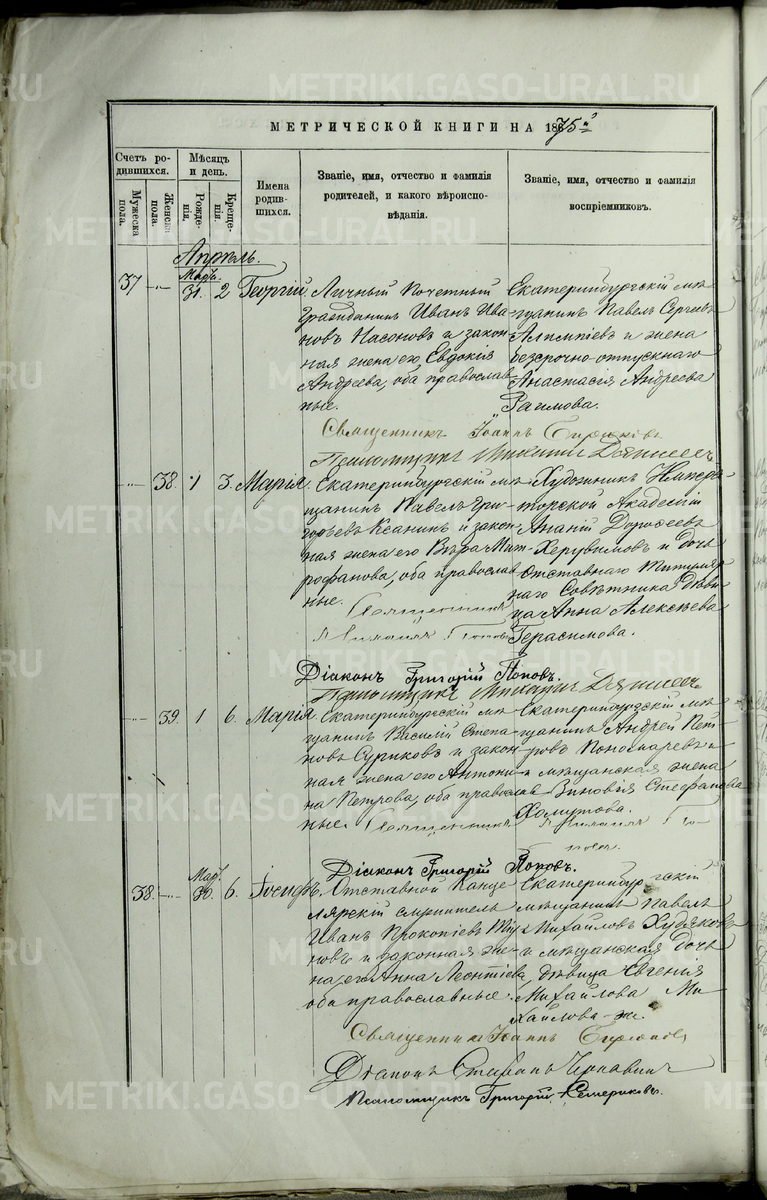 МЕТРИЧЕСКОЙ КНИГИ НА 1875й
Счетъ ро-
дившихся.
Мужеска
пола.
Женска
пола.
Мѣсяцъ
и день.
Рожде-
нія.
Креще-
нія.
Имена
родив-
шихся.
Званіе, имя, отчество и фамилія
родителей, и какого вѣроиспо-
вѣданія.
Званіе, имя, отчество и фамилія
воспріемниковъ.
Апрѣль.
37 Марта. 31. 2 Георгій.
Личный Почетный
Гражданинъ Иванъ Ива
новъ Насоновъ и закон
ная жена его Евдокія
Андреева, оба православ
ные.
Екатеринбургскій мѣ
щанинъ Павелъ Сергеевъ
Алимпіевъ и жена
безсрочно-отпускнаго
Анастасія Андреева
Рагимова.
Священникъ Іоаннъ
38 1 3. Марія.
Екатеринбургскій мѣ
щанинъ Павелъ Гри-
горьевъ Ксанинъ и закон-
ная жена его Вѣра Мит-
рофанова, оба православ
ные.
Художникъ Импера
торской Академіи
Ананій Дорофеевъ
Херувимовъ и дочь
отставнаго Титуляр
наго Совѣтника дѣви
ца Анна Алексѣева
Герасимова.
Священникъ
Поповъ
Діаконъ Григорій Поповъ.
39. 1 6. Марія.
Екатеринбургскій мѣ
щанинъ Василій Степа-
новъ Суриковъ и закон
ная жена его Антони-
на Петрова, оба православ
ные.
Екатеринбургскій мѣ
щанинъ Андрей Пет
ровъ Пономаревъ и
мѣщанская жена
Зиновія Стефанова
Хомутова.
Священникъ
Діаконъ Григорій Поповъ.
38. Мар. 30. 6. Іосифъ.
Отставной Канце
лярскій служитель
Иванъ Прокопіевъ
новъ и законная же-
на его Анна Леонтіева,
оба православные.
Екатеринбургскій
мѣщанинъ Павелъ
Михайловъ Худяковъ
и мѣщанская дочь
дѣвица Евгенія
Михайлова Ми
хайлова-же.
Священникъ Іоаннъ
Діаконъ Стефанъ
Псаломщикъ Григорій Кемериковъ.
METRIKI.GASO-URAL.RU